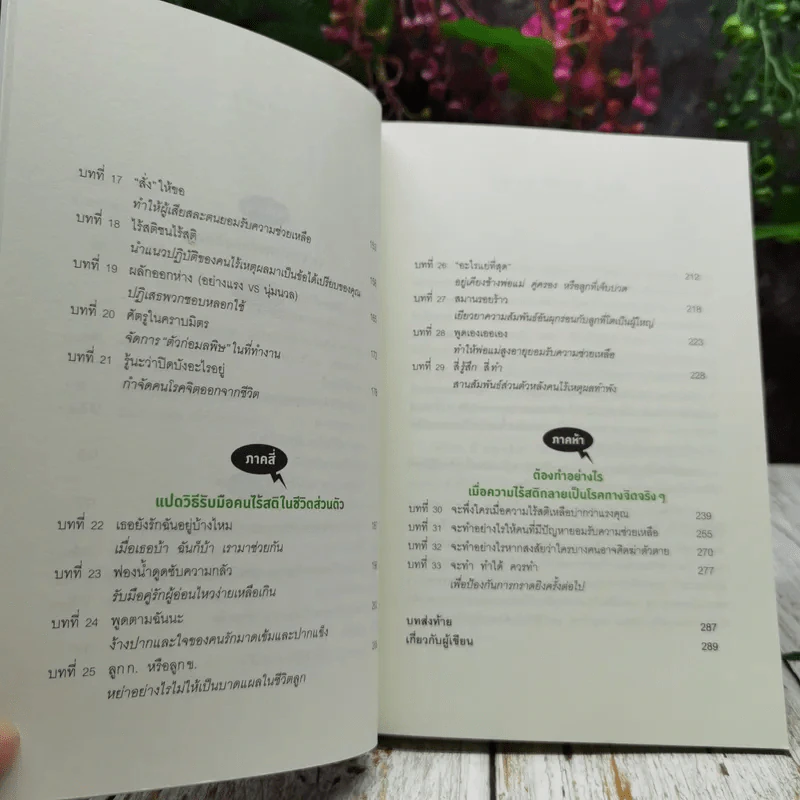 บทที่ 17 "สั่ง" ให้ขอ
ทำให้ผู้เสียสละตนยอมรับความช่วยเหลือ
บทที่ 18 ไร้สติชนไร้สติ
นำแนวปฏิบัติของคนไร้เหตุผลมาเป็นข้อได้เปรียบของคุณ
บทที่ 19 ผลักออกห่าง (อย่างแรง VS นุ่มนวล)
ปฏิเสธพวกชอบหลอกใช้
บทที่ 20 ศัตรูในคราบมิตร
จัดการ "ตัวก่อมลพิษ" ในที่ทำงาน
บทที่ 21 รู้นะว่าปิดบังอะไรอยู่
กำจัดคนโรคจิตออกจากชีวิต
ภาคสี่
แปดวิธีรับมือคนไร้สติในชีวิตส่วนตัว
บทที่ 22 เธอยังรักฉันอยู่บ้างไหม
เมื่อเธอบ้า ฉันก็บ้า เรามาช่วยกัน
บทที่ 23 ฟองน้ำดูดซับความกลัว
รับมือคู่รักผู้อ่อนไหวง่ายเหลือเกิน
บทที่ 24 พูดตามฉันนะ
ง้างปากและใจของคนรักมาดเข้มและปากแข็ง
บทที่ 25 ลูก ก. หรือลูก ข.
หย่าอย่างไรไม่ให้เป็นบาดแผลในชีวิตลูก
บทที่ 26 "อะไรแย่ที่สุด" 212
อยู่เคียงข้างพ่อแม่ คู่ครอง หรือลูกที่เจ็บปวด
บทที่ 27 สมานรอยร้าว 218
เยียวยาความสัมพันธ์อันผุกร่อนกับลูกที่โตเป็นผู้ใหญ่
บทที่ 28 พูดเองเออเอง 223
ทำให้พ่อแม่สูงอายุยอมรับความช่วยเหลือ
บทที่ 29 สี่รู้สึก สี่ทำ 228
สานสัมพันธ์ส่วนตัวหลังคนไร้เหตุผลทำพัง
ภาคห้า
ต้องทำอย่างไร
เมื่อความไร้สติกลายเป็นโรคทางจิตจริง ๆ
บทที่ 30 จะพึ่งใครเมื่อความไร้สติเหลือบ่ากว่าแรงคุณ 239
บทที่ 31 จะทำอย่างไรให้คนที่มีปัญหายอมรับความช่วยเหลือ 255
บทที่ 32 จะทำอย่างไรหากสงสัยว่าใครบางคนอาจคิดฆ่าตัวตาย 270
บทที่ 33 จะทำ ทำได้ ควรทำ 277
เพื่อป้องกันการกราดยิงครั้งต่อไป
บทส่งท้าย 287
เกี่ยวกับผู้เขียน 289